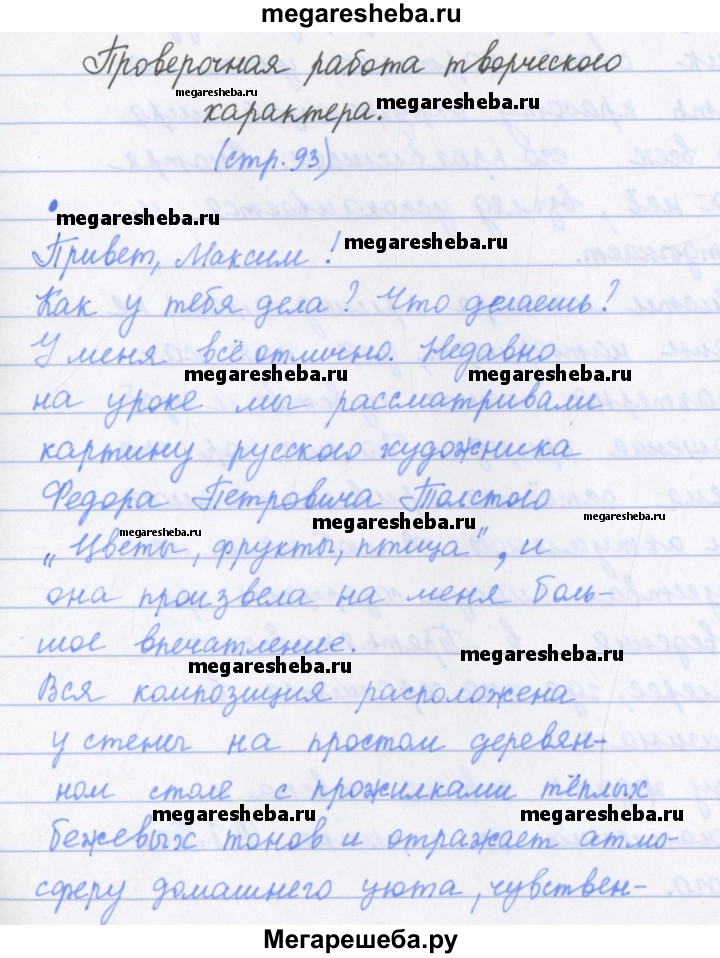 megaresheba.ru
Проверочная работа творческого
megaresheba.ru
характера.
megaresheba.ru
(стр. 93)
megaresheba.ru
Привет, Максим!
megaresheba.ru
Как у тебя дела? Что делаешь?
У меня всё отлично. Недавно
megaresheba.ru
megaresheba.ru
на уроке мы рассматривали
картину русского художника
Федора Петровича Толстого
megaresheba.ru
megaresheba.ru
megaresheba.ru
„Цветы, фрукты, птица", и
она произвела на меня боль-
шое впечатление.
megaresheba.ru
megaresheba.ru
Вся композиция расположена
у стены на простом деревян-
ном столе с прожилками тёплых
megaresheba.ru
megaresheba.ru
бежевых тонов и отражает атмо-
сферу домашнего уюта, чувствен-
Мегарешеба.ру